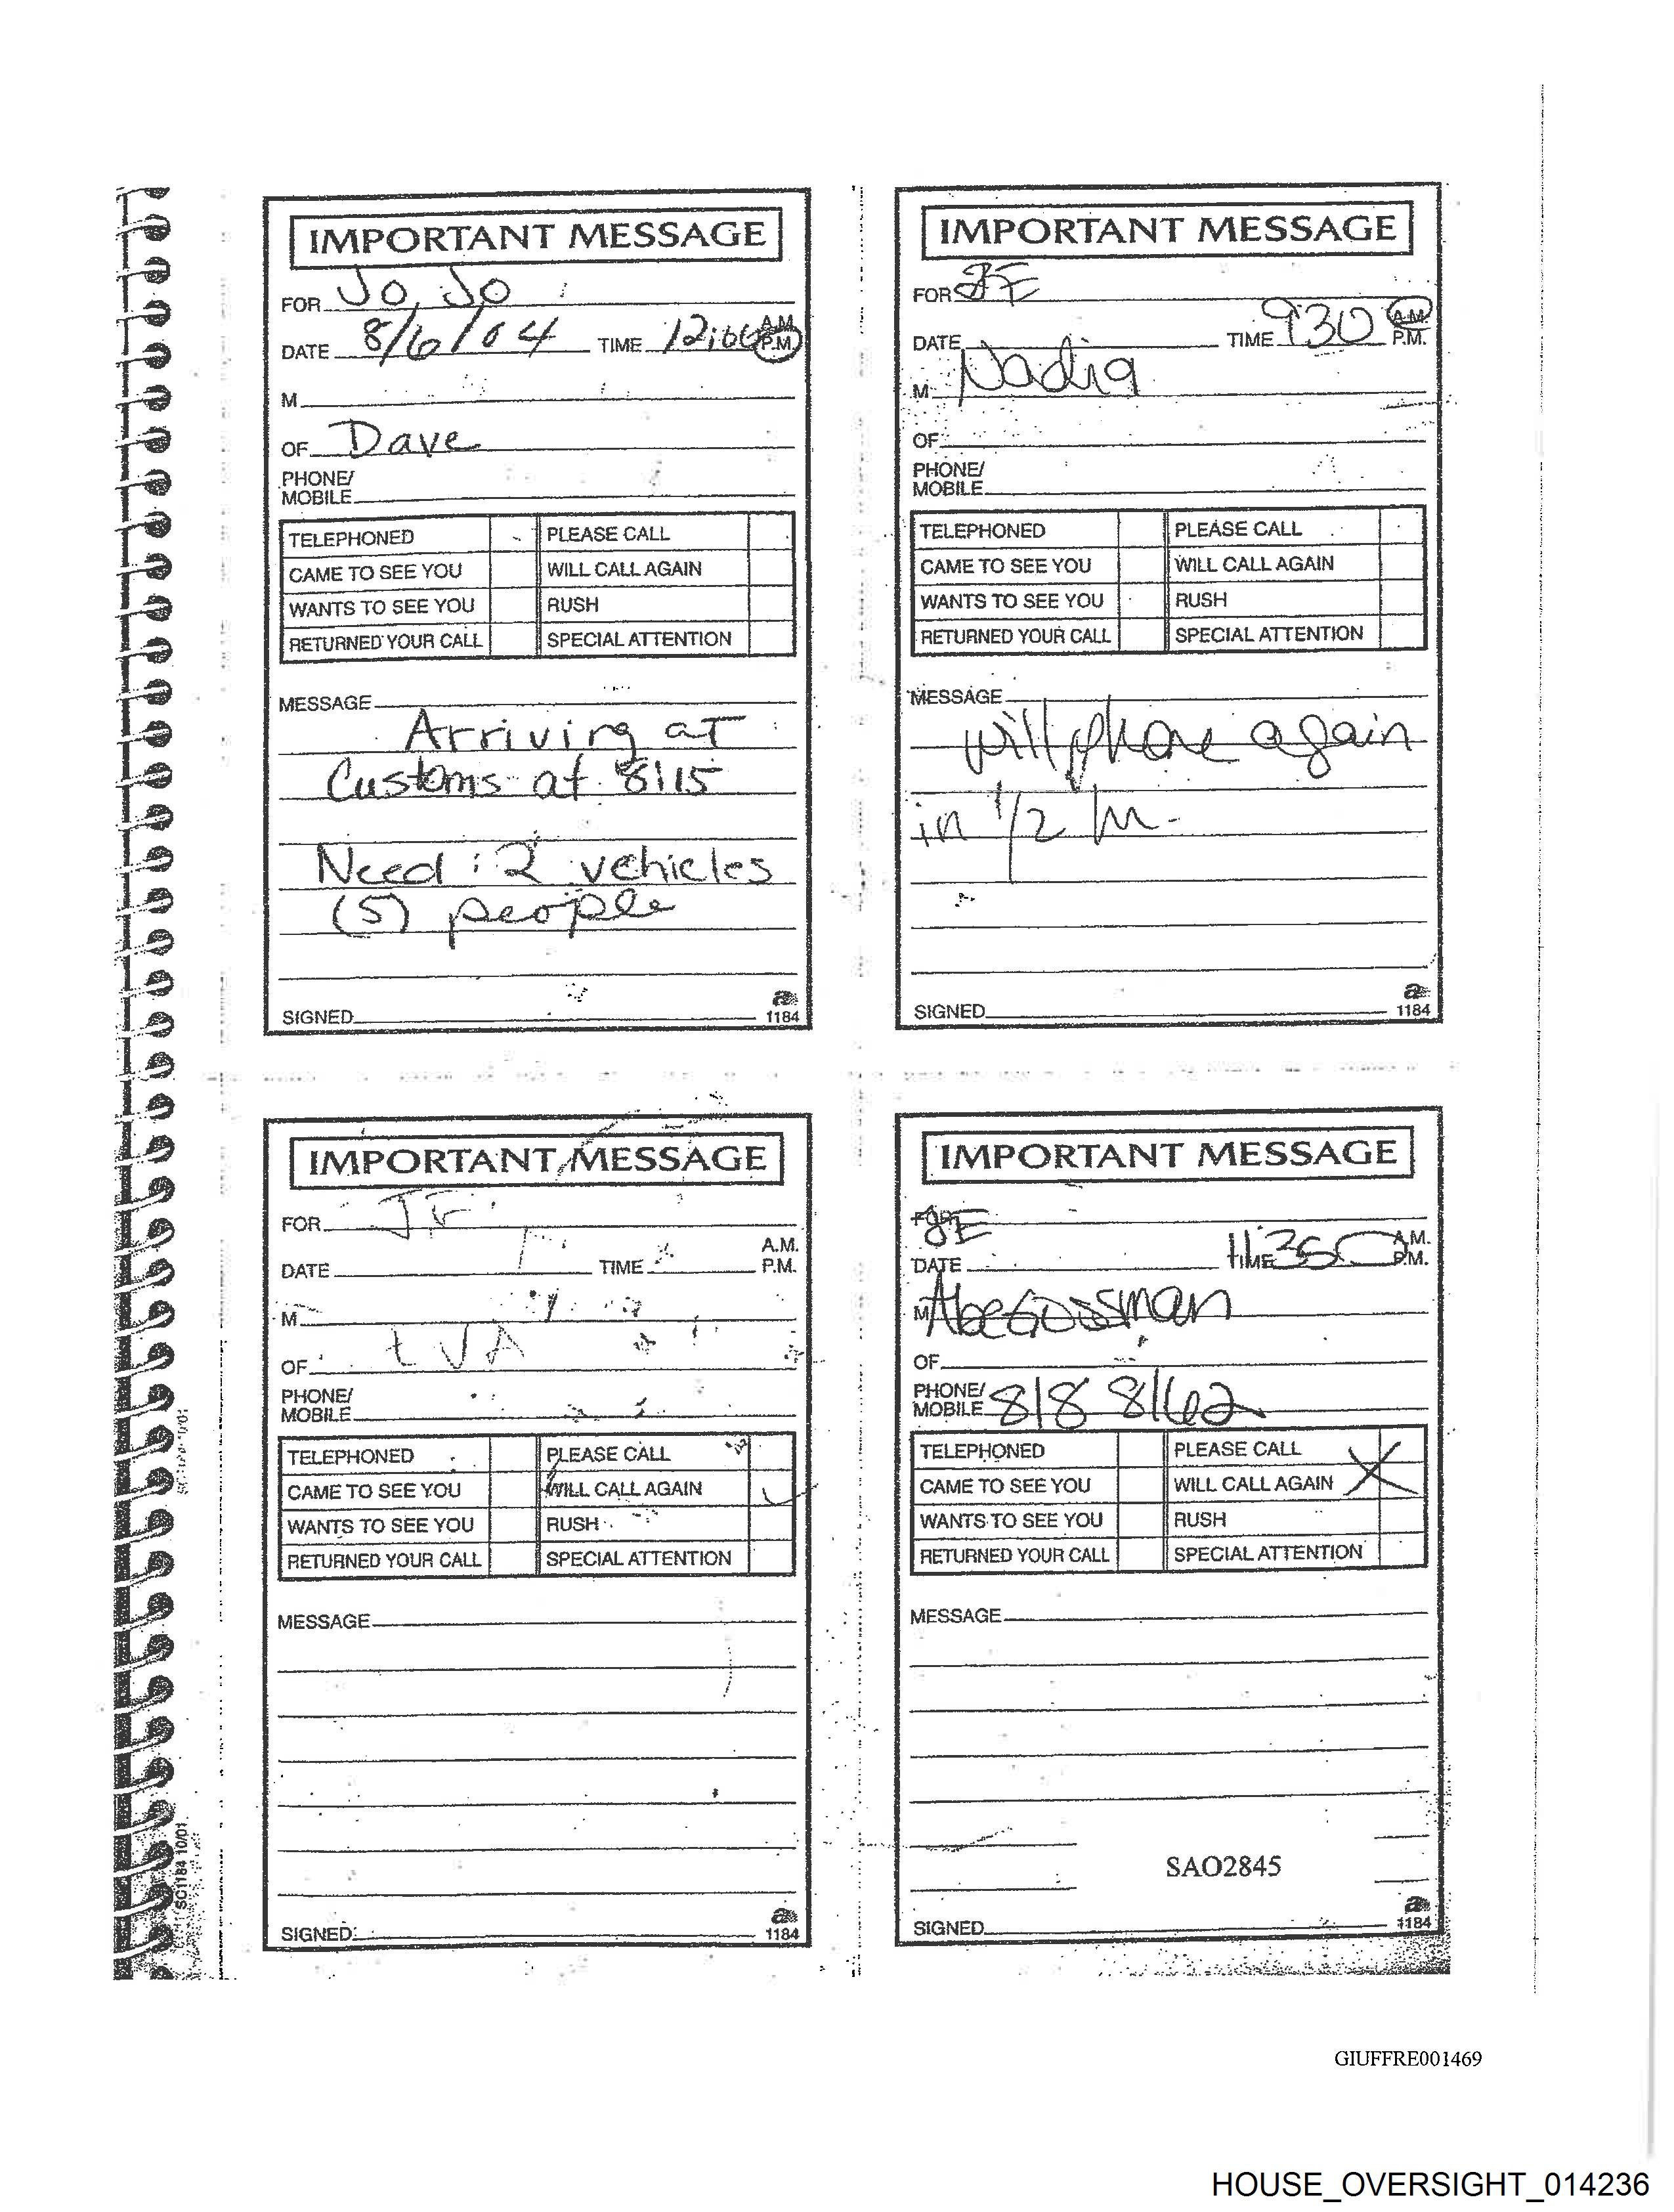 IMPORTANT MESSAGE
FOR Jo Jo
DATE 8/6/04 TIME 12:00 A.M. P.M.
M
OF Dave
PHONE/
MOBILE
TELEPHONED PLEASE CALL
CAME TO SEE YOU WILL CALL AGAIN
WANTS TO SEE YOU RUSH
RETURNED YOUR CALL SPECIAL ATTENTION
MESSAGE
Arriving at
Customs at 8:15
Need : 2 vehicles
(5) people
SIGNED
a
1184
IMPORTANT MESSAGE
FOR JE
DATE TIME 9:30 A.M. P.M.
M Nadia
OF
PHONE/
MOBILE
TELEPHONED PLEASE CALL
CAME TO SEE YOU WILL CALL AGAIN
WANTS TO SEE YOU RUSH
RETURNED YOUR CALL SPECIAL ATTENTION
MESSAGE
will phone again
in 1/2 hr.
SIGNED
a
1184
IMPORTANT MESSAGE
FOR J.E.
DATE TIME A.M. P.M.
M
OF
PHONE/
MOBILE
TELEPHONED PLEASE CALL
CAME TO SEE YOU WILL CALL AGAIN
WANTS TO SEE YOU RUSH
RETURNED YOUR CALL SPECIAL ATTENTION
MESSAGE
SIGNED
a
1184
SC1184 10/01
IMPORTANT MESSAGE
FOR JE
DATE TIME 11:35 A.M. P.M.
M Abe Gossman
OF
PHONE/
MOBILE 818 8162
TELEPHONED PLEASE CALL
CAME TO SEE YOU WILL CALL AGAIN
WANTS TO SEE YOU RUSH
RETURNED YOUR CALL SPECIAL ATTENTION
MESSAGE
SAO2845
SIGNED
a
1184
GIUFFRE001469
HOUSE_OVERSIGHT_014236